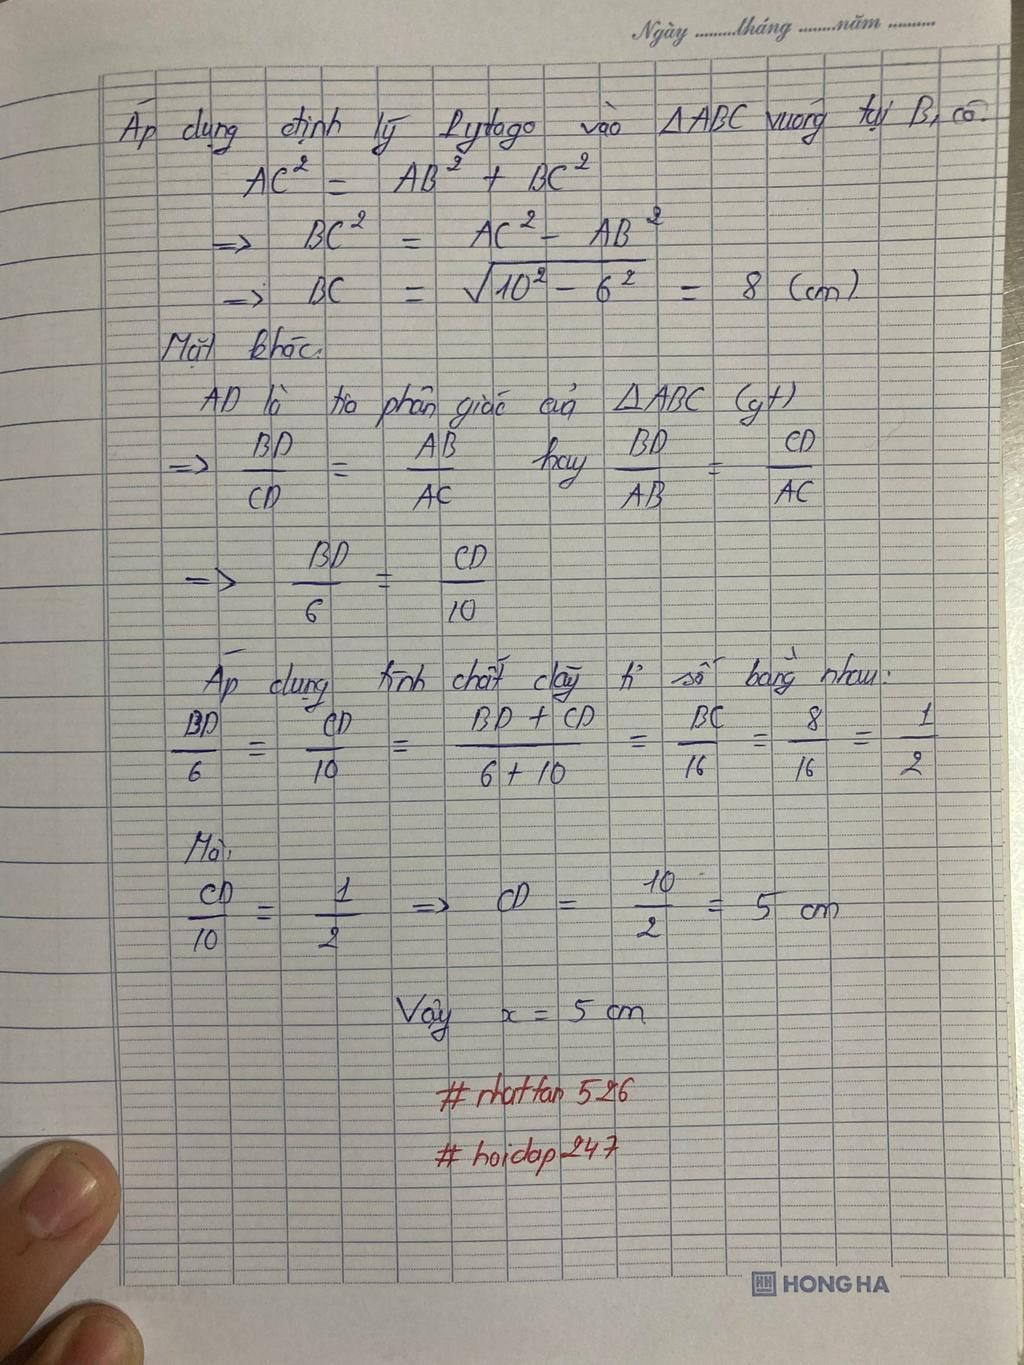 Ngày .........tháng ........năm ..........
Áp dụng định lý Pytago vào ΔABC vuông tại B, có:
AC² = AB² + BC²
=> BC² = AC² - AB²
=> BC = √10² - 6² = 8 (cm)
Mặt khác:
AD là tia phân giác của ΔABC (gt)
=> BD/CD = AB/AC hay BD/AB = CD/AC
=> BD/6 = CD/10
Áp dụng tính chất dãy tỉ số bằng nhau:
BD/6 = CD/10 = BD + CD/6 + 10 = BC/16 = 8/16 = 1/2
Mà:
CD/10 = 1/2 => CD = 10/2 = 5 cm
Vậy x = 5 cm
# nhattan 526
# hoidap247
HH HONG HA